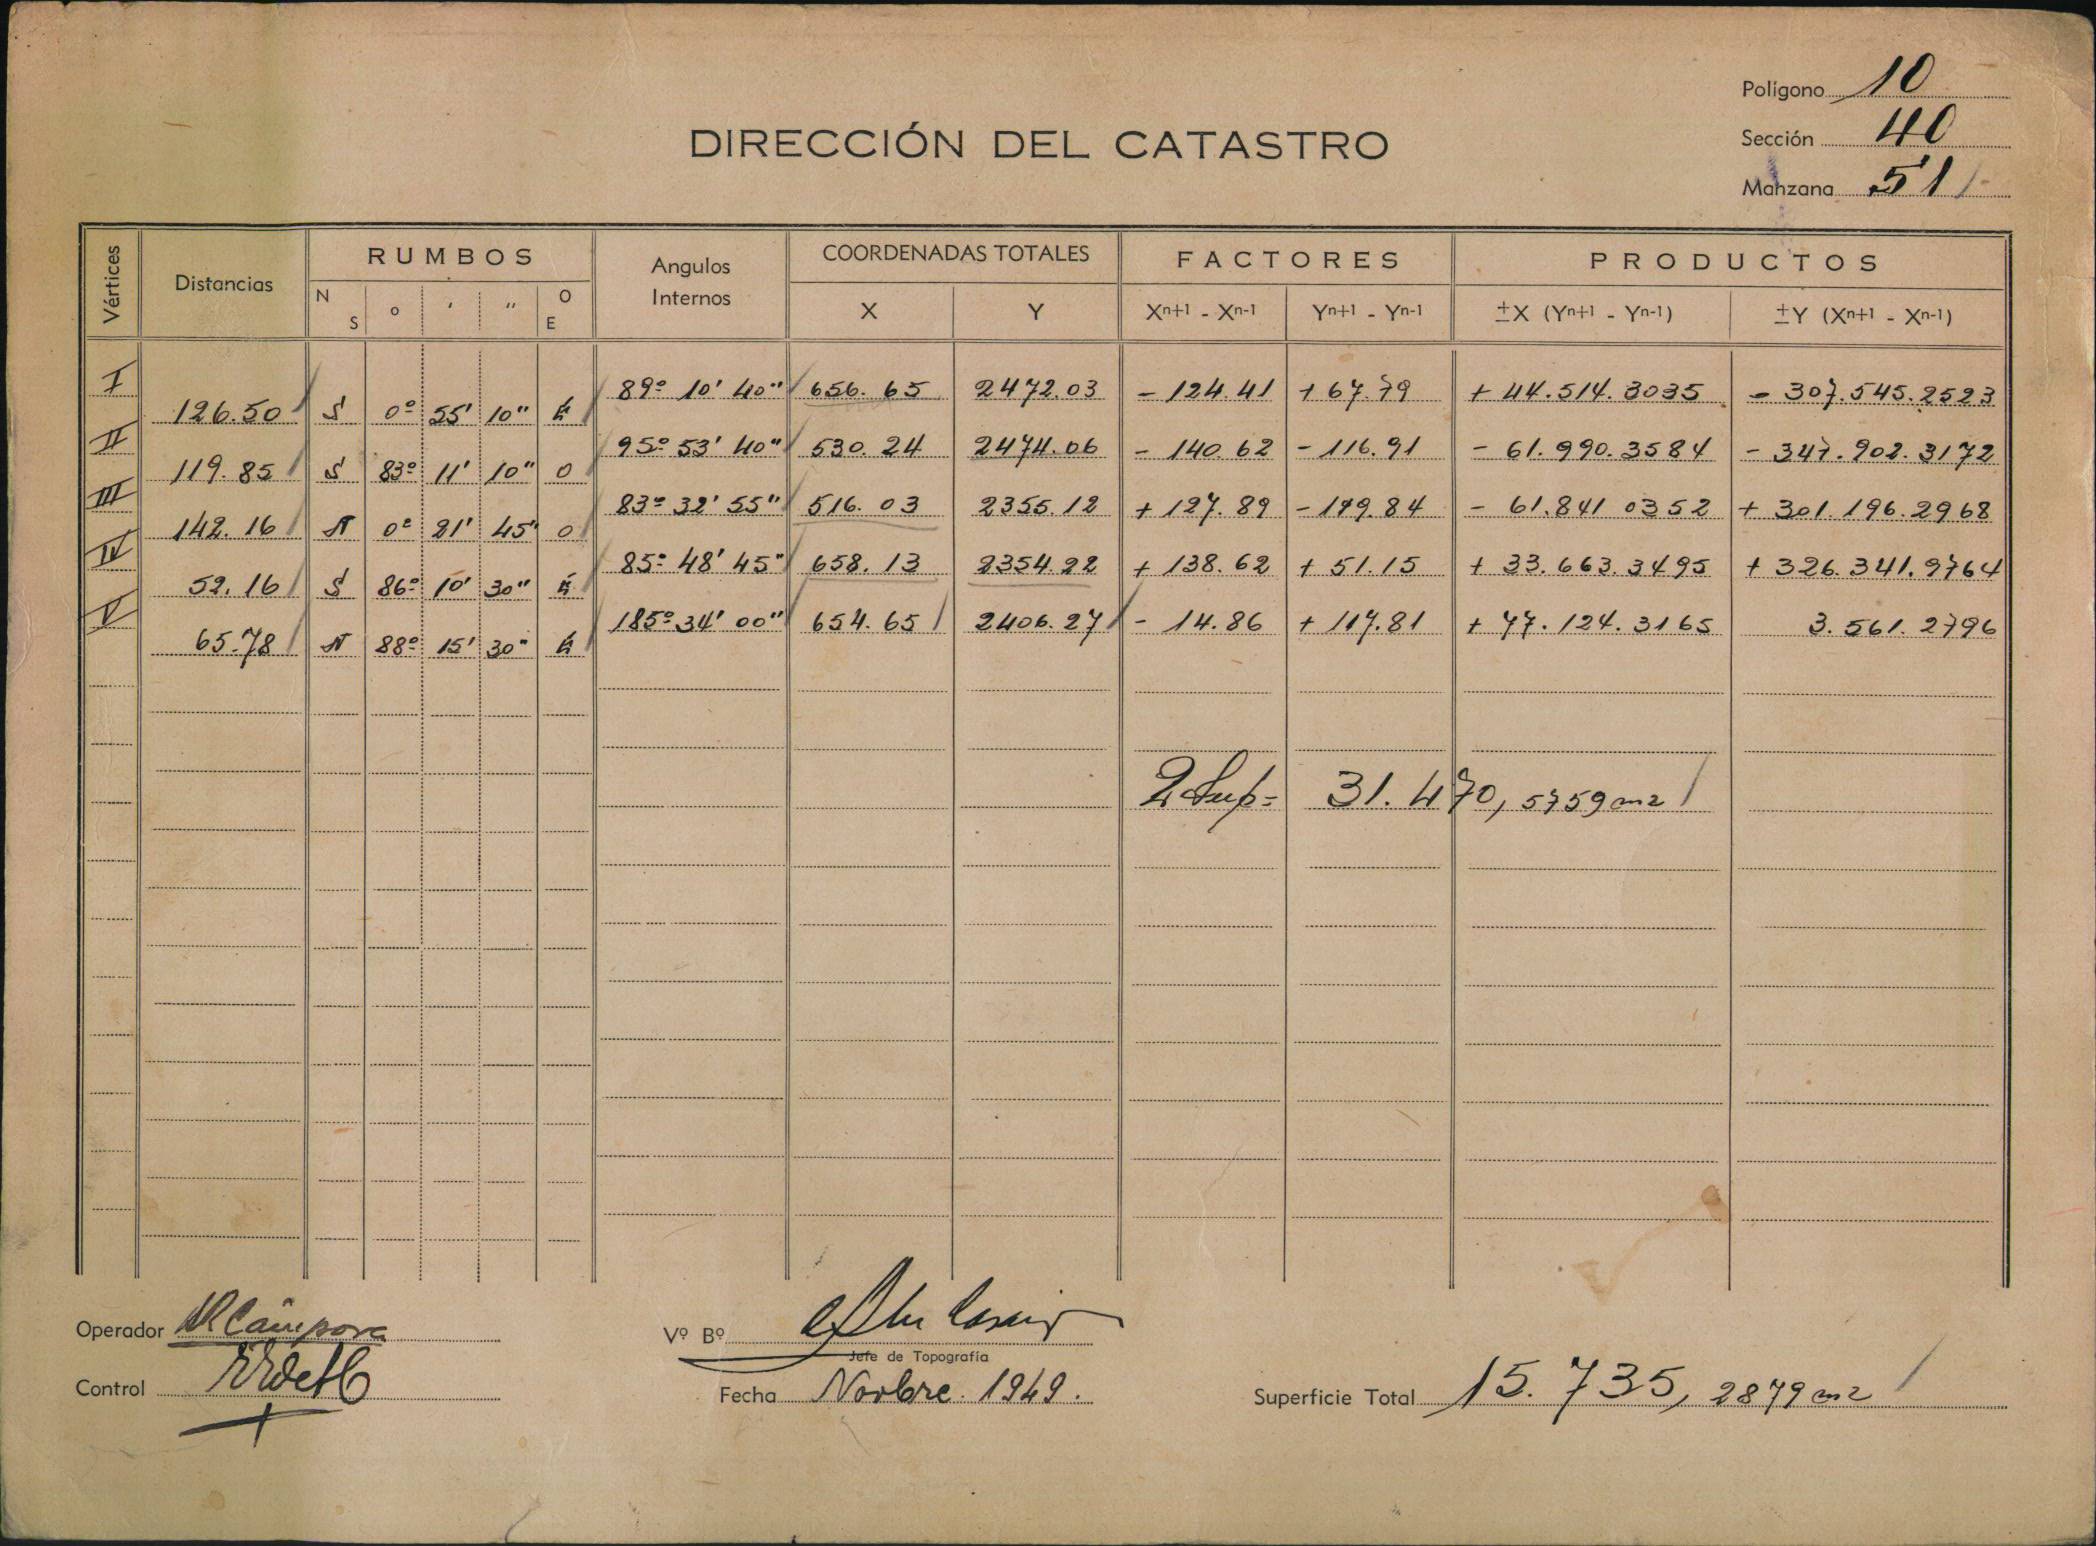 Polígono 10
Sección 40
Manzana 51
DIRECCIÓN DEL CATASTRO
Vértices Distancias RUMBOS Angulos Internos COORDENADAS TOTALES FACTORES PRODUCTOS
N S o ' " O E X Y Xn+1 - Xn-1 Yn+1 - Yn-1 ±X (Yn+1 - Yn-1) ±Y (Xn+1 - Xn-1)
I 89º 10' 40" 656.65 2472.03 - 124.41 + 67.79 + 44.514.3035 - 307.545.2523
126.50 S 0º 55' 10" E
II 95º 53' 40" 530.24 2474.06 - 140.62 - 116.91 - 61.990.3584 - 347.902.3172
119.85 S 83º 11' 10" O
III 83º 32' 55" 516.03 2355.12 + 127.89 - 119.84 - 61.841 0352 + 301.196.2968
142.16 N 0º 21' 45" O
IV 85º 48' 45" 658.13 2354.22 + 138.62 + 51.15 + 33.663.3495 + 326.341.9764
52.16 S 86º 10' 30" E
V 185º 34' 00" 654.65 2406.27 - 14.86 + 117.81 + 77.124.3165 3.561.2796
65.78 N 88º 15' 30" E
2 Sup = 31.470,5759 m2
Operador
Vº Bº
Jefe de Topografía
Control
Fecha Novbre. 1949.
Superficie Total 15.735,2879 m2